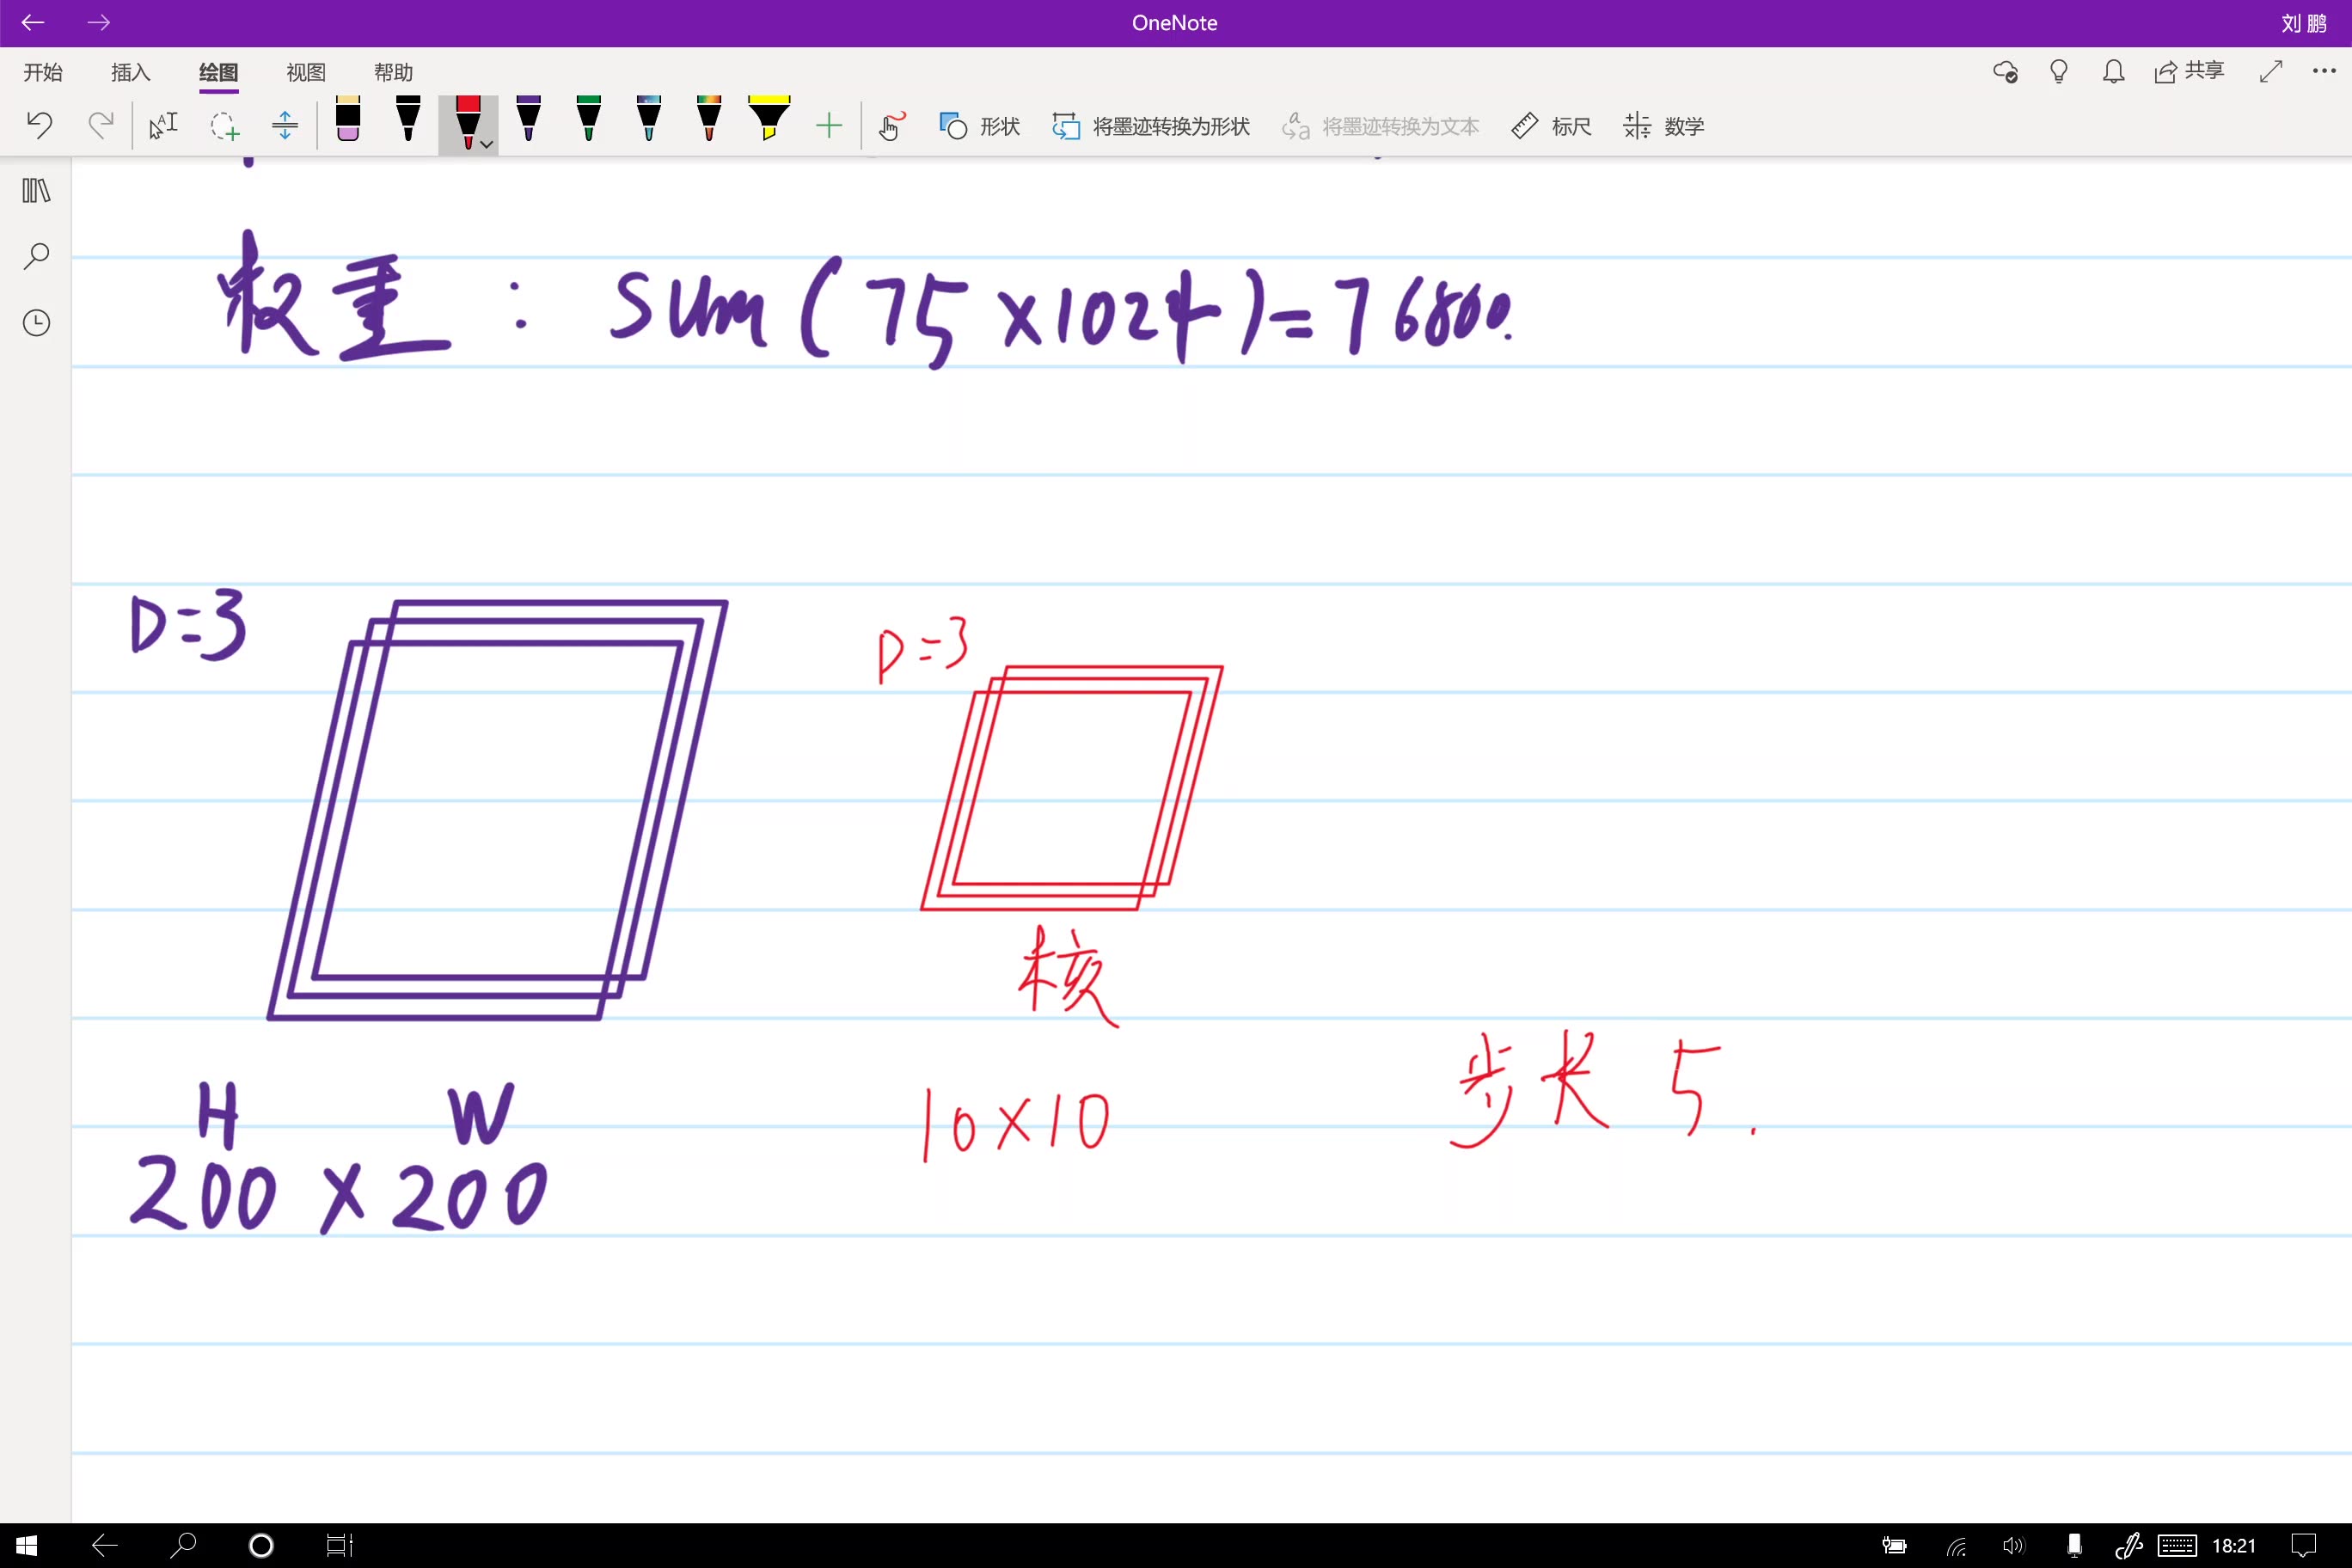 OneNote
刘 鹏
开始 插入 绘图 视图 帮助
共享
形状 将墨迹转换为形状 将墨迹转换为文本 标尺 数学
权重 : sum(75×1024)=76800.
D=3
D=3
核
步长 5.
H W
10×10
200×200
18:21